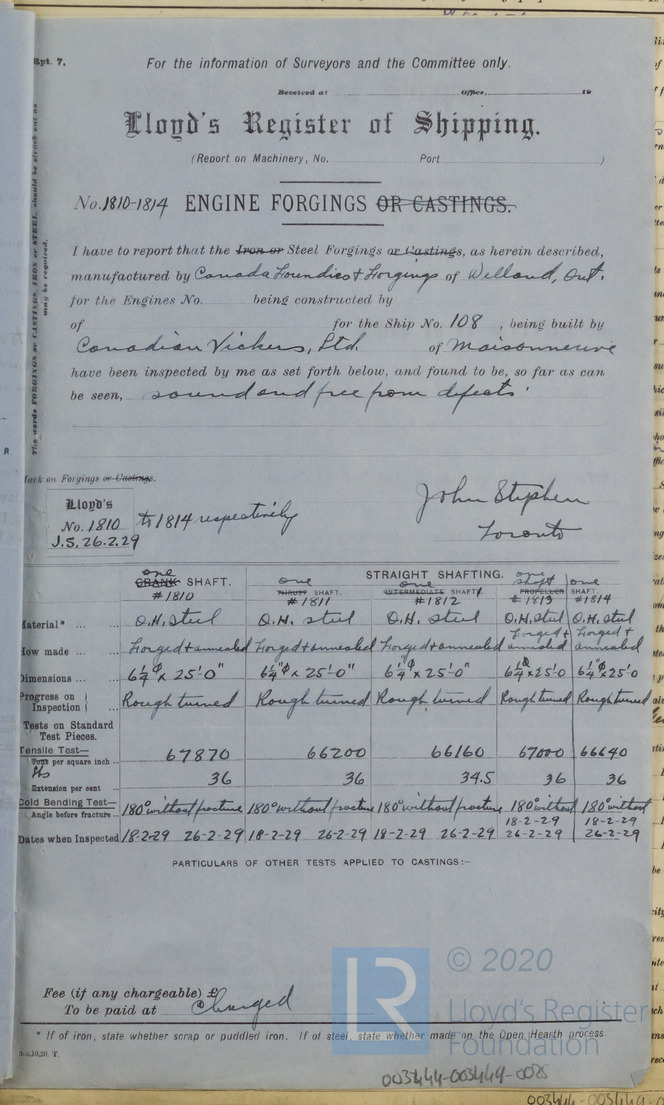 Rpt. 7.
For the information of Surveyors and the Committee only.
Received at Office, 19
Lloyd's Register of Shipping.
(Report on Machinery, No. Port )
No. 1810-1814 ENGINE FORGINGS OR CASTINGS.
I have to report that the Iron or Steel Forgings or Castings, as herein described,
manufactured by Canada Foundries & Forgings of Welland, Ont.
for the Engines No. being constructed by
of for the Ship No. 108 , being built by
Canadian Vickers, Ltd. of Maisonneuve
have been inspected by me as set forth below, and found to be, so far as can
be seen, sound and free from defects.
The words FORGINGS or CASTINGS, IRON or STEEL, should be struck out as
may be required.
Mark on Forgings or Castings.
Lloyd's
No. 1810
J.S. 26.2.29
to 1814 respectively
John Stephen
Toronto
one CRANK SHAFT.
#1810
STRAIGHT SHAFTING.
one THRUST SHAFT.
#1811
one INTERMEDIATE SHAFT
#1812
one shaft PROPELLER
#1813
one SHAFT.
#1814
Material* ... ... O.H. steel O.H. steel O.H. steel O.H. steel O.H. steel
How made ... ... Forged & annealed Forged & annealed Forged & annealed Forged & annealed Forged & annealed
Dimensions ... ... 6¼"φ x 25'-0" 6¼"φ x 25'-0" 6¼"φ x 25'-0" 6¼"φ x 25'0 6¼"φ x 25'0
Progress on Inspection } ... Rough turned Rough turned Rough turned Rough turned Rough turned
Tests on Standard
Test Pieces.
Tensile Test—
Tons per square inch ... 67870 66200 66160 67000 66640
lbs
Extension per cent 36 36 34.5 36 36
Cold Bending Test—
Angle before fracture ... 180° without fracture 180° without fracture 180° without fracture 180° without 180° without
Dates when Inspected 18-2-29 26-2-29 18-2-29 26-2-29 18-2-29 26-2-29 18-2-29 26-2-29 18-2-29 26-2-29
PARTICULARS OF OTHER TESTS APPLIED TO CASTINGS:—
Fee (if any chargeable) £
To be paid at Charged
* If of iron, state whether scrap or puddled iron. If of steel, state whether made on the Open Hearth process.
LR
© 2020
Lloyd's Register
Foundation
003444-003449-0025